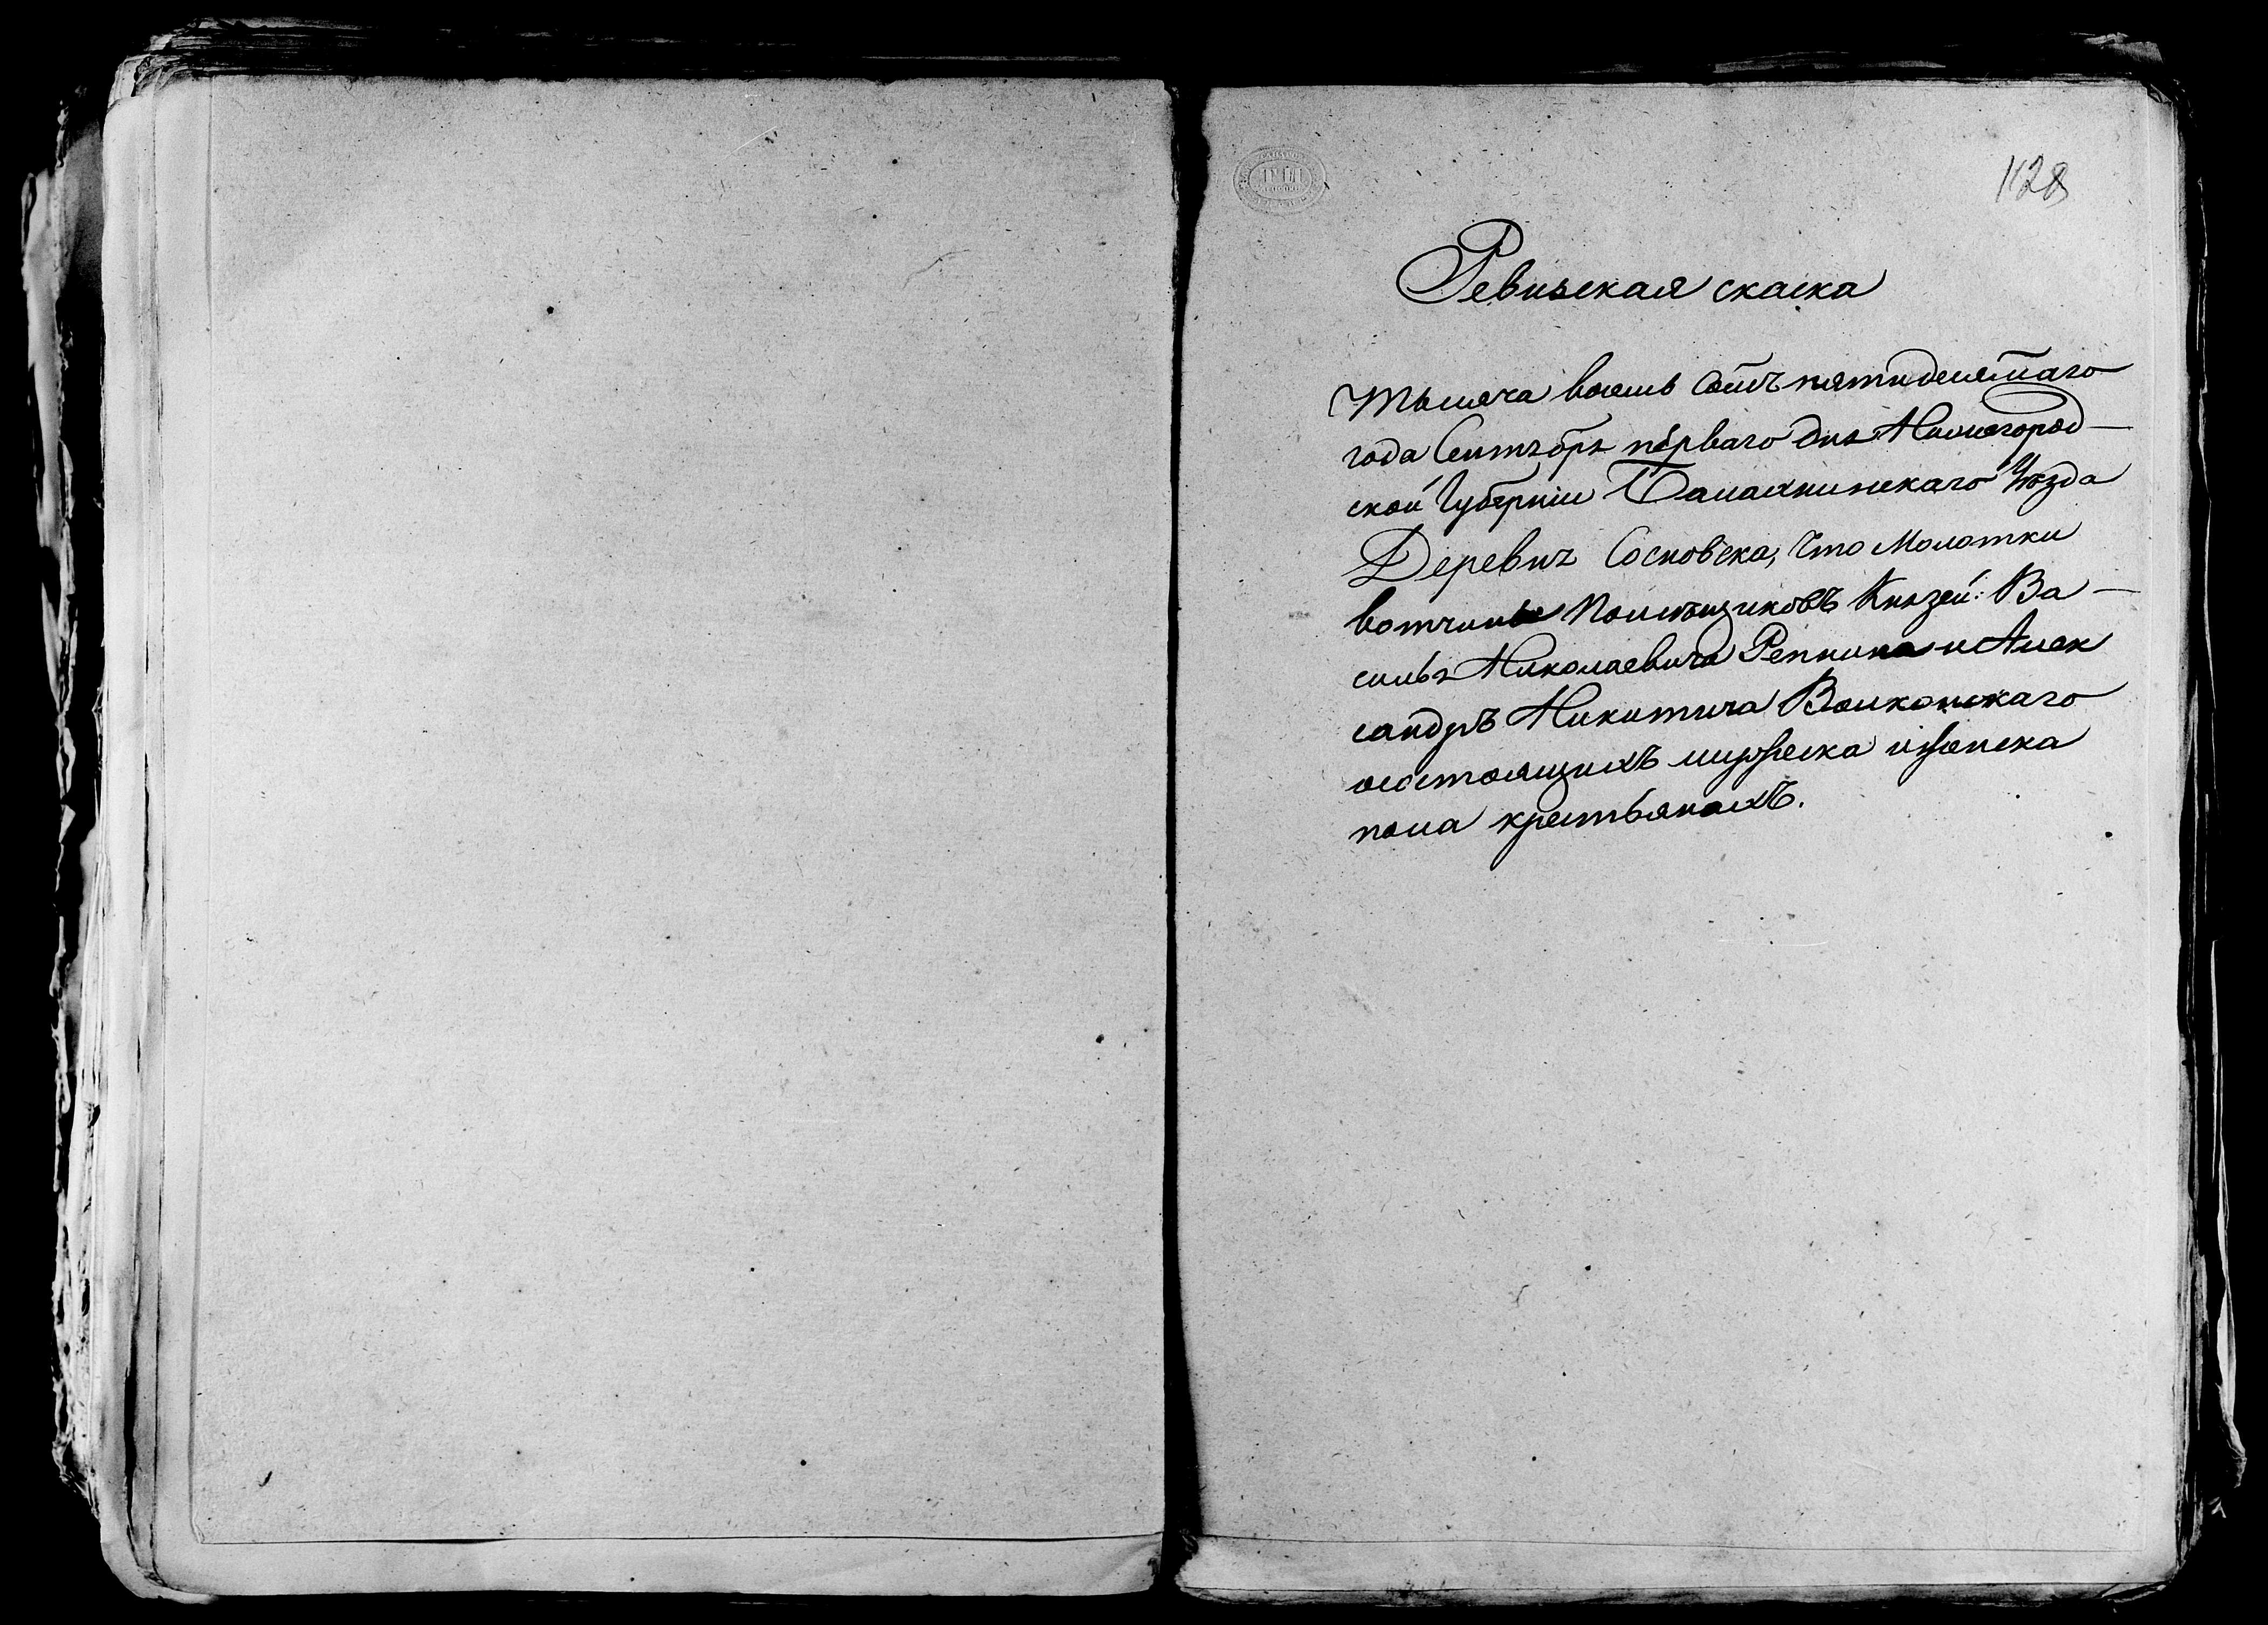 1128
Ревизская скаска
Тысяча восемь сотъ пятидесятаго
года Сентября перваго дня Нижегород-
ской Губерніи Балахнинскаго Уѣзда
Деревнѣ Сосновска, что Молотки
вотчины Помѣщиковъ Князей: Ва-
силья Николаевича Репнина и Алек
сандръ Никитича Волконскаго
осостоящихъ мужеска иженска
пола крестьянахъ.